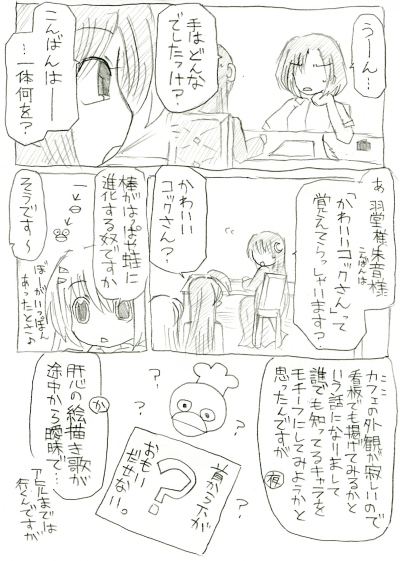 うーん…
手はどんな
でしたっけ?
こんばんはー
…一体何を?
あ 羽堂様朱音様
こんばんは
「かわいいコックさん」って
覚えてらっしゃいます?
かわいい
コックさん?
棒がはっぱや蛙に
進化する奴ですか
そうです〜
ぼーが
いっぽん
あったとさ♪
カフェの外観が寂しいので
看板でも掲げてみるかと
いう話になりまして
誰でも知ってるキャラを
モチーフにしてみようかと
思ったんですが
?
?
?
?
首から下が
おもい
だせない。
?
肝心の絵描き歌が
途中から曖昧で…
か
アヒルまでは
行くんですが